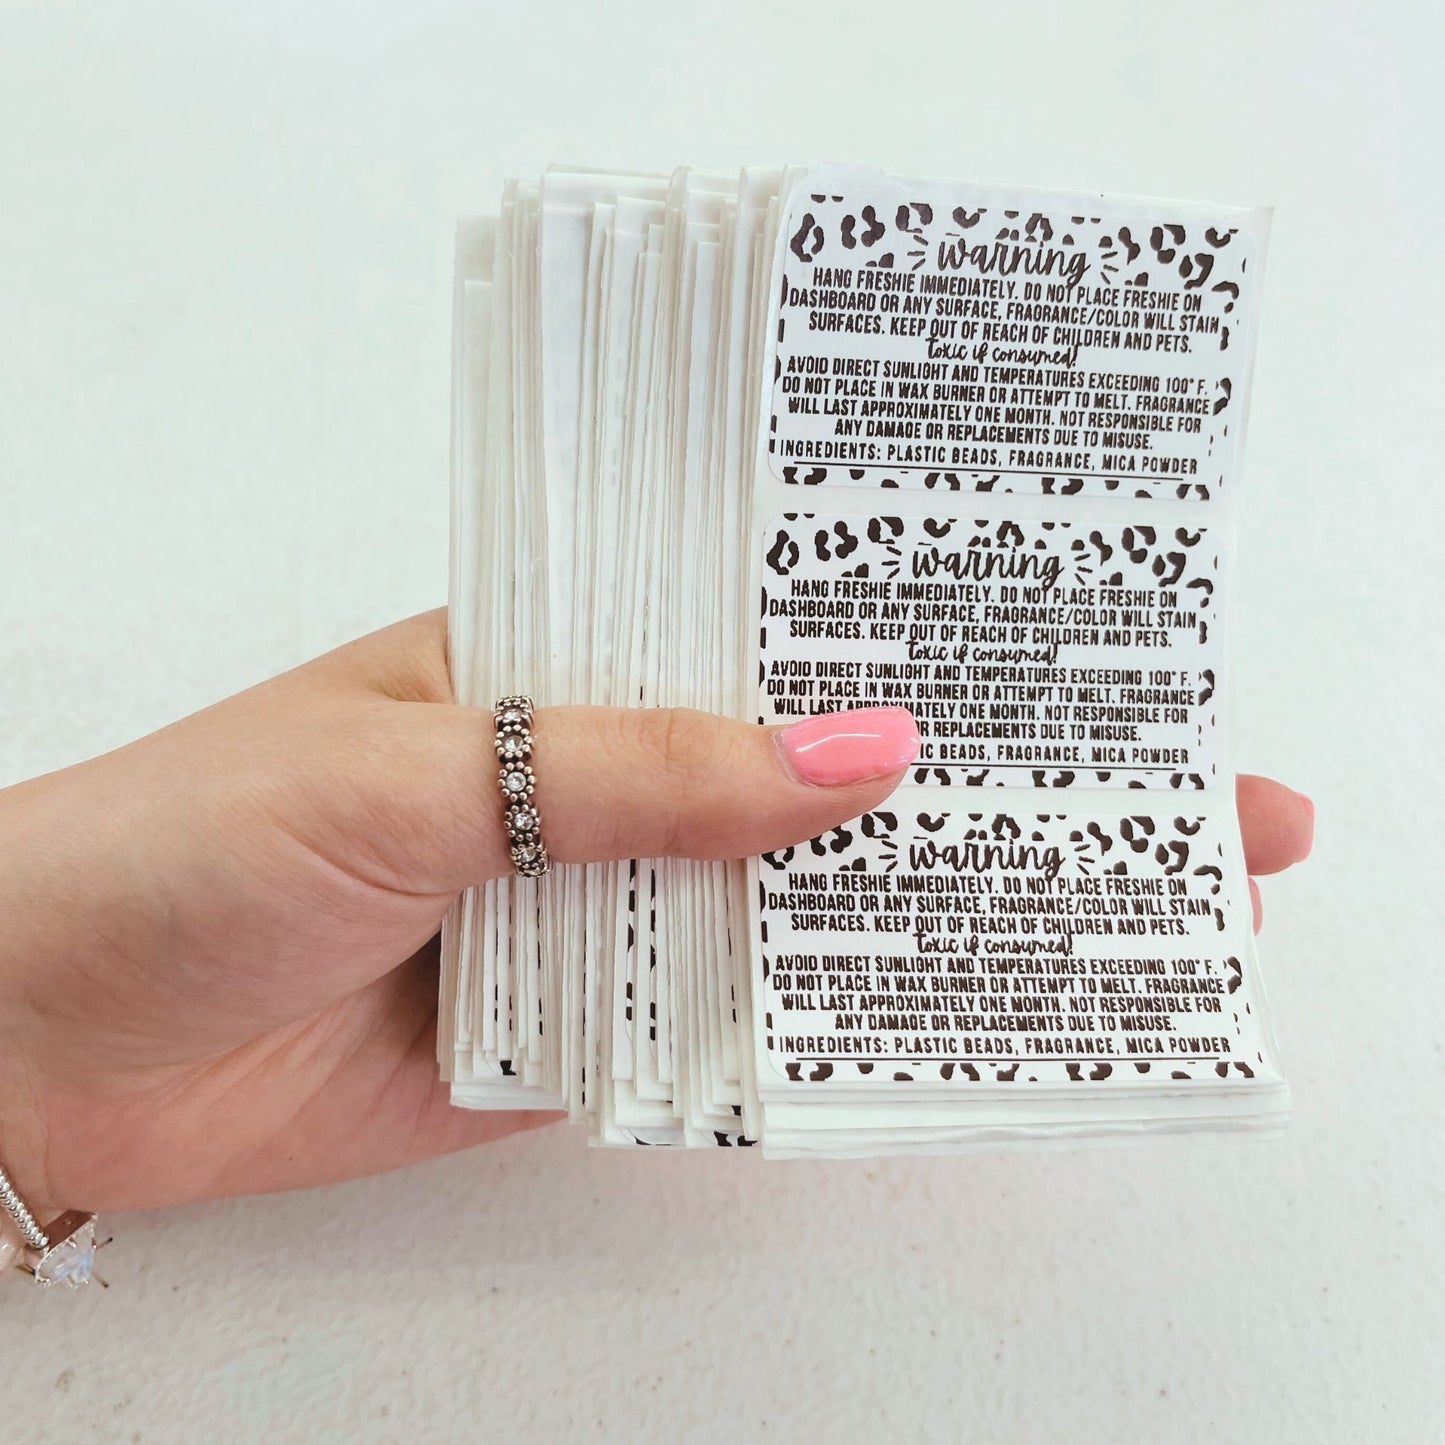 warning
HANG FRESHIE IMMEDIATELY. DO NOT PLACE FRESHIE ON
DASHBOARD OR ANY SURFACE, FRAGRANCE/COLOR WILL STAIN
SURFACES. KEEP OUT OF REACH OF CHILDREN AND PETS.
toxic if consumed!
AVOID DIRECT SUNLIGHT AND TEMPERATURES EXCEEDING 100° F.
DO NOT PLACE IN WAX BURNER OR ATTEMPT TO MELT. FRAGRANCE
WILL LAST APPROXIMATELY ONE MONTH. NOT RESPONSIBLE FOR
ANY DAMAGE OR REPLACEMENTS DUE TO MISUSE.
INGREDIENTS: PLASTIC BEADS, FRAGRANCE, MICA POWDER
warning
HANG FRESHIE IMMEDIATELY. DO NOT PLACE FRESHIE ON
DASHBOARD OR ANY SURFACE, FRAGRANCE/COLOR WILL STAIN
SURFACES. KEEP OUT OF REACH OF CHILDREN AND PETS.
toxic if consumed!
AVOID DIRECT SUNLIGHT AND TEMPERATURES EXCEEDING 100° F.
DO NOT PLACE IN WAX BURNER OR ATTEMPT TO MELT. FRAGRANCE
WILL LAST APPROXIMATELY ONE MONTH. NOT RESPONSIBLE FOR
OR REPLACEMENTS DUE TO MISUSE.
BEADS, FRAGRANCE, MICA POWDER
warning
HANG FRESHIE IMMEDIATELY. DO NOT PLACE FRESHIE ON
DASHBOARD OR ANY SURFACE, FRAGRANCE/COLOR WILL STAIN
SURFACES. KEEP OUT OF REACH OF CHILDREN AND PETS.
toxic if consumed!
AVOID DIRECT SUNLIGHT AND TEMPERATURES EXCEEDING 100° F.
DO NOT PLACE IN WAX BURNER OR ATTEMPT TO MELT. FRAGRANCE
WILL LAST APPROXIMATELY ONE MONTH. NOT RESPONSIBLE FOR
ANY DAMAGE OR REPLACEMENTS DUE TO MISUSE.
INGREDIENTS: PLASTIC BEADS, FRAGRANCE, MICA POWDER